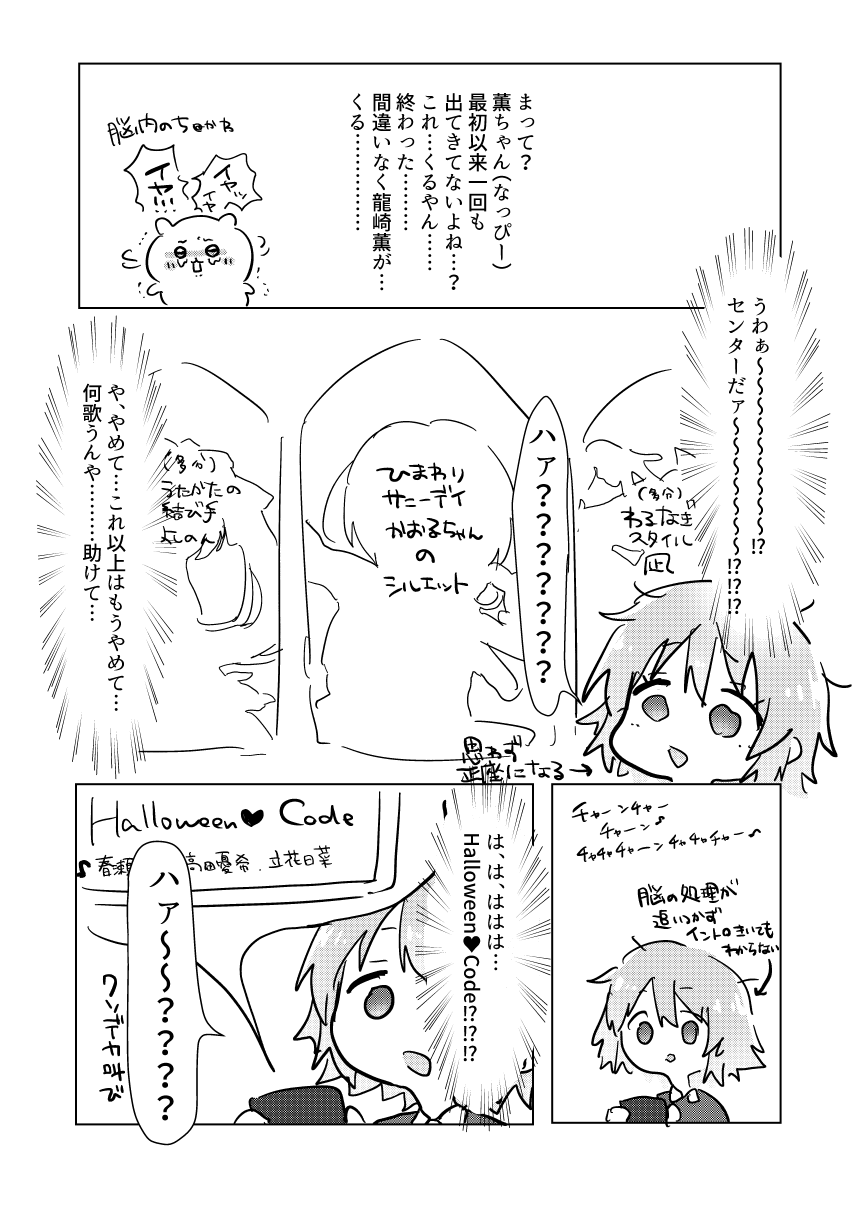 まって？
薫ちゃん(なっぴー)
最初以来一回も
出てきてないよね…？
これ…くるやん……
終わった………
間違いなく龍崎薫が…
くる……………
脳内のちいかわ
イヤッ
イヤ
イヤ!!!
うわぁ〜〜〜〜〜〜〜〜⁉
センターだァ〜〜〜〜〜〜〜⁉⁉⁉
(多分)
わるなき
スタイル
凪
ハァ？？？？？？？？
ひまわり
サニーデイ
かおるちゃん
の
シルエット
(多分)
うたかたの
結び手
よしのん
や、やめて…これ以上はもうやめて…
何歌うんや………助けて…
思わず
正座になる→
チャーンチャー
チャーン♪
チャチャチャーンチャチャチャー♪
脳の処理が
追いつかず
イントロきいても
わからない
は、は、ははは…
Halloween♥Code⁉⁉⁉
Halloween♥Code
♪春瀬 高田憂希.立花日菜
ハァ〜〜？？？？？
ワンデイヤ叫び